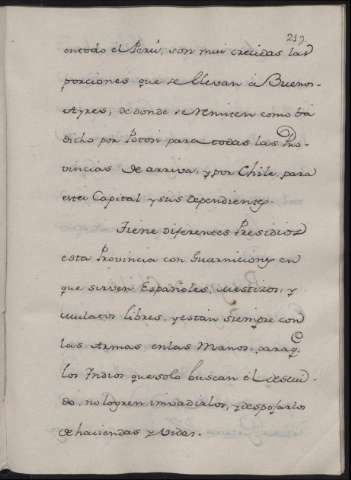 219
entodo el Perú, son mui crecidas las
porciones que se llevan â Buenos-
Ayres; de donde se remiten como ba
dicho por Potosi para todas las Pro-
vincias de arriva, y por Chile, para
esta Capital y sus Dependientes.
Tiene diferentes Presidios
esta Provincia con Guarniciones en
que sirven Españoles, mestizos, y
mulatos libres, y están siempre con
las Armas en las Manos, para q.e
los Indios que solo buscan el descui-
do, no logren imbadirlos, y despojarlos
de haciendas y vidas.